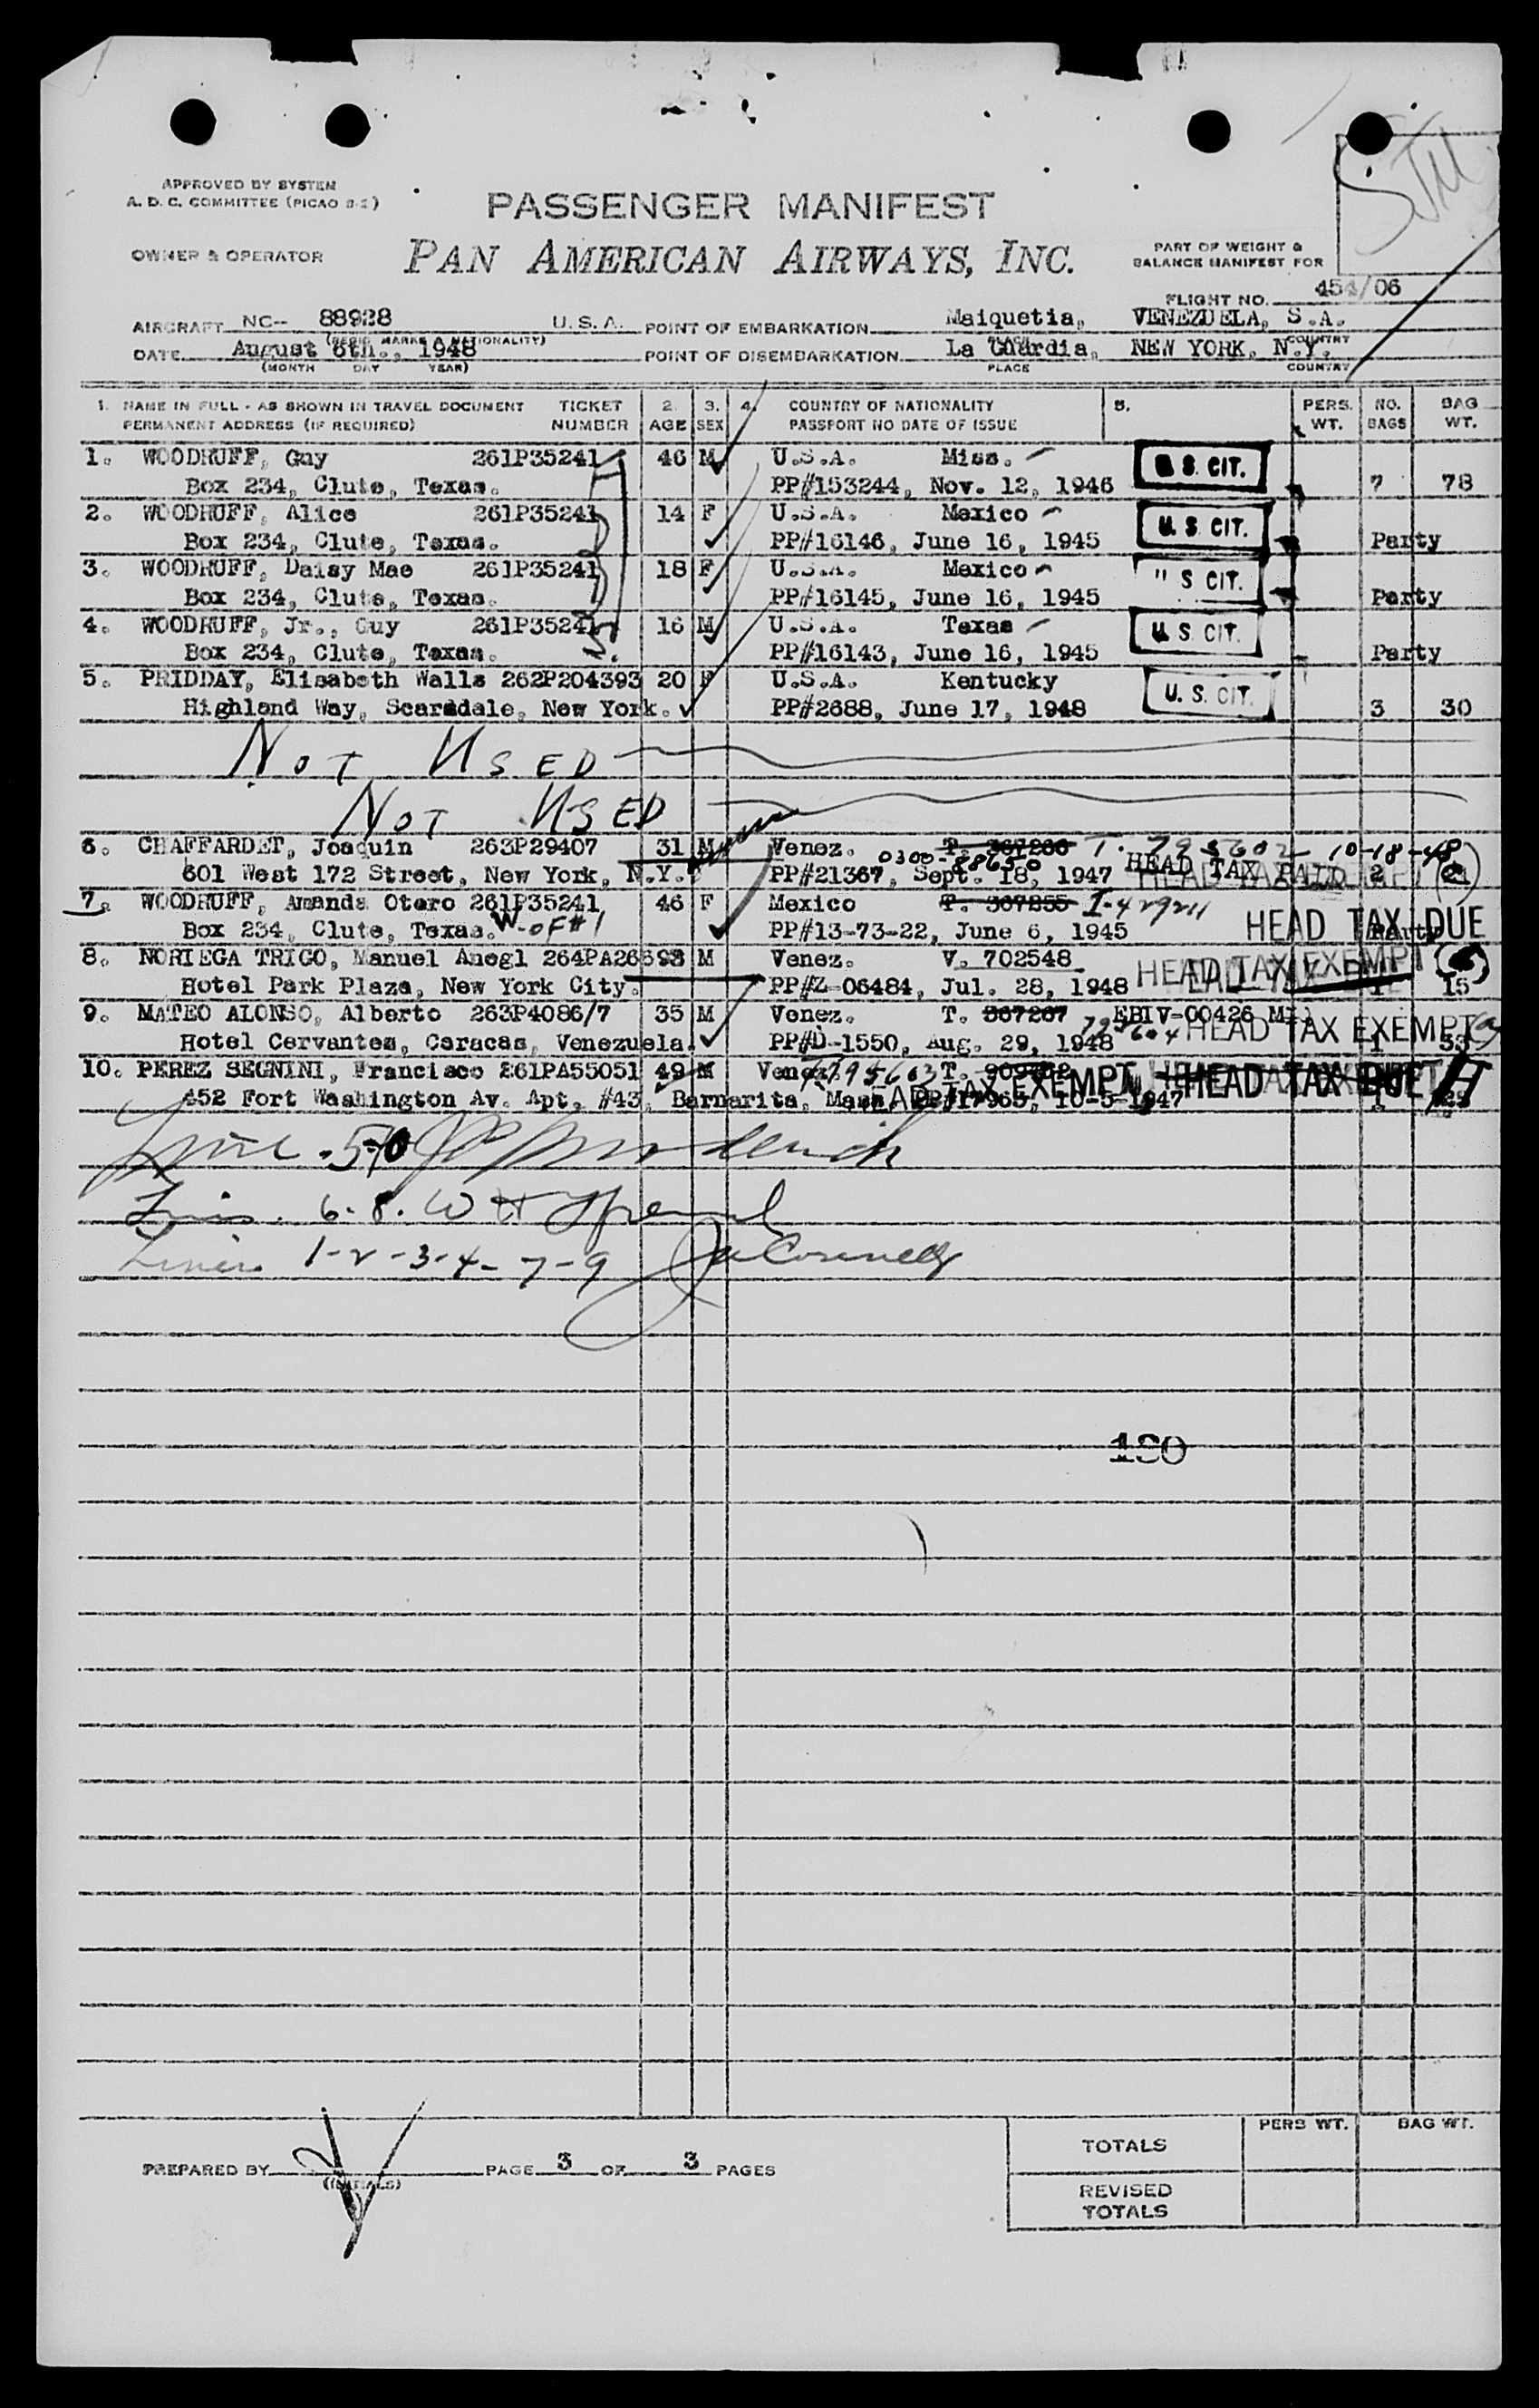 STM
APPROVED BY SYSTEM
A. D. C. COMMITTEE (PICAO 8-2)
PASSENGER MANIFEST
OWNER & OPERATOR
PAN AMERICAN AIRWAYS, INC.
PART OF WEIGHT &
BALANCE MANIFEST FOR
FLIGHT NO. 454/06
AIRCRAFT NC-- 88928 U. S. A. POINT OF EMBARKATION Maiquetia, VENEZUELA, S.A.
(REGIS. MARKS & NATIONALITY) PLACE COUNTRY
DATE August 6th., 1948 POINT OF DISEMBARKATION La Guardia, NEW YORK, N.Y.
(MONTH DAY YEAR) PLACE COUNTRY
1. NAME IN FULL - AS SHOWN IN TRAVEL DOCUMENT TICKET 2. 3. 4. COUNTRY OF NATIONALITY 5. PERS. NO. BAG
PERMANENT ADDRESS (IF REQUIRED) NUMBER AGE SEX PASSPORT NO DATE OF ISSUE WT. BAGS WT.
1. WOODRUFF, Guy 261P35241 46 M U.S.A. Miss. U. S. CIT.
Box 234, Clute, Texas. PP#153244, Nov. 12, 1946 7 78
2. WOODRUFF, Alice 261P35241 14 F U.S.A. Mexico U. S. CIT.
Box 234, Clute, Texas. PP#16146, June 16, 1945 Party
3. WOODRUFF, Daisy Mae 261P35241 18 F U.S.A. Mexico U S CIT.
Box 234, Clute, Texas. PP#16145, June 16, 1945 Party
4. WOODRUFF, Jr., Guy 261P35241 16 M U.S.A. Texas U. S. CIT.
Box 234, Clute, Texas. PP#16143, June 16, 1945 Party
5. PRIDDAY, Elisabeth Walls 262P204393 20 F U.S.A. Kentucky U. S. CIT.
Highland Way, Scarsdale, New York. PP#2688, June 17, 1948 3 30
NOT USED
NOT USED
6. CHAFFARDET, Joaquin 263P29407 31 M Venez. T. 367266 T. 795602 10-18-48
0300-88650
601 West 172 Street, New York, N.Y. PP#21367, Sept. 18, 1947 HEAD TAX PAID 2 21
7. WOODRUFF, Amanda Otero 261P35241 46 F Mexico T. 367255 I-429211
Box 234, Clute, Texas. W-OF#1 PP#13-73-22, June 6, 1945 HEAD TAX DUE Party
8. NORIEGA TRIGO, Manuel Anegl 264PA26593 M Venez. V. 702548
Hotel Park Plaza, New York City. PP#Z-06484, Jul. 28, 1948 HEAD TAX EXEMPT 1 15
9. MATEO ALONSO, Alberto 263P4086/7 35 M Venez. T. 367267 EBIV-00426
795604
Hotel Cervantes, Caracas, Venezuela. PP#D-1550, Aug. 29, 1948 HEAD TAX EXEMPT 1 33
10. PEREZ SEGNINI, Francisco 261PA55051 49 M Venez. T795603
452 Fort Washington Av. Apt, #43, Barnarita, Mass. PP#17965, 10-5-1947 HEAD TAX EXEMPT HEAD TAX DUE
Line 5-10
Lines 6-8. W H
Lines 1-2-3-4-7-9
130
PREPARED BY (INITIALS) PAGE 3 OF 3 PAGES
TOTALS PERS WT. BAG WT.
REVISED
TOTALS